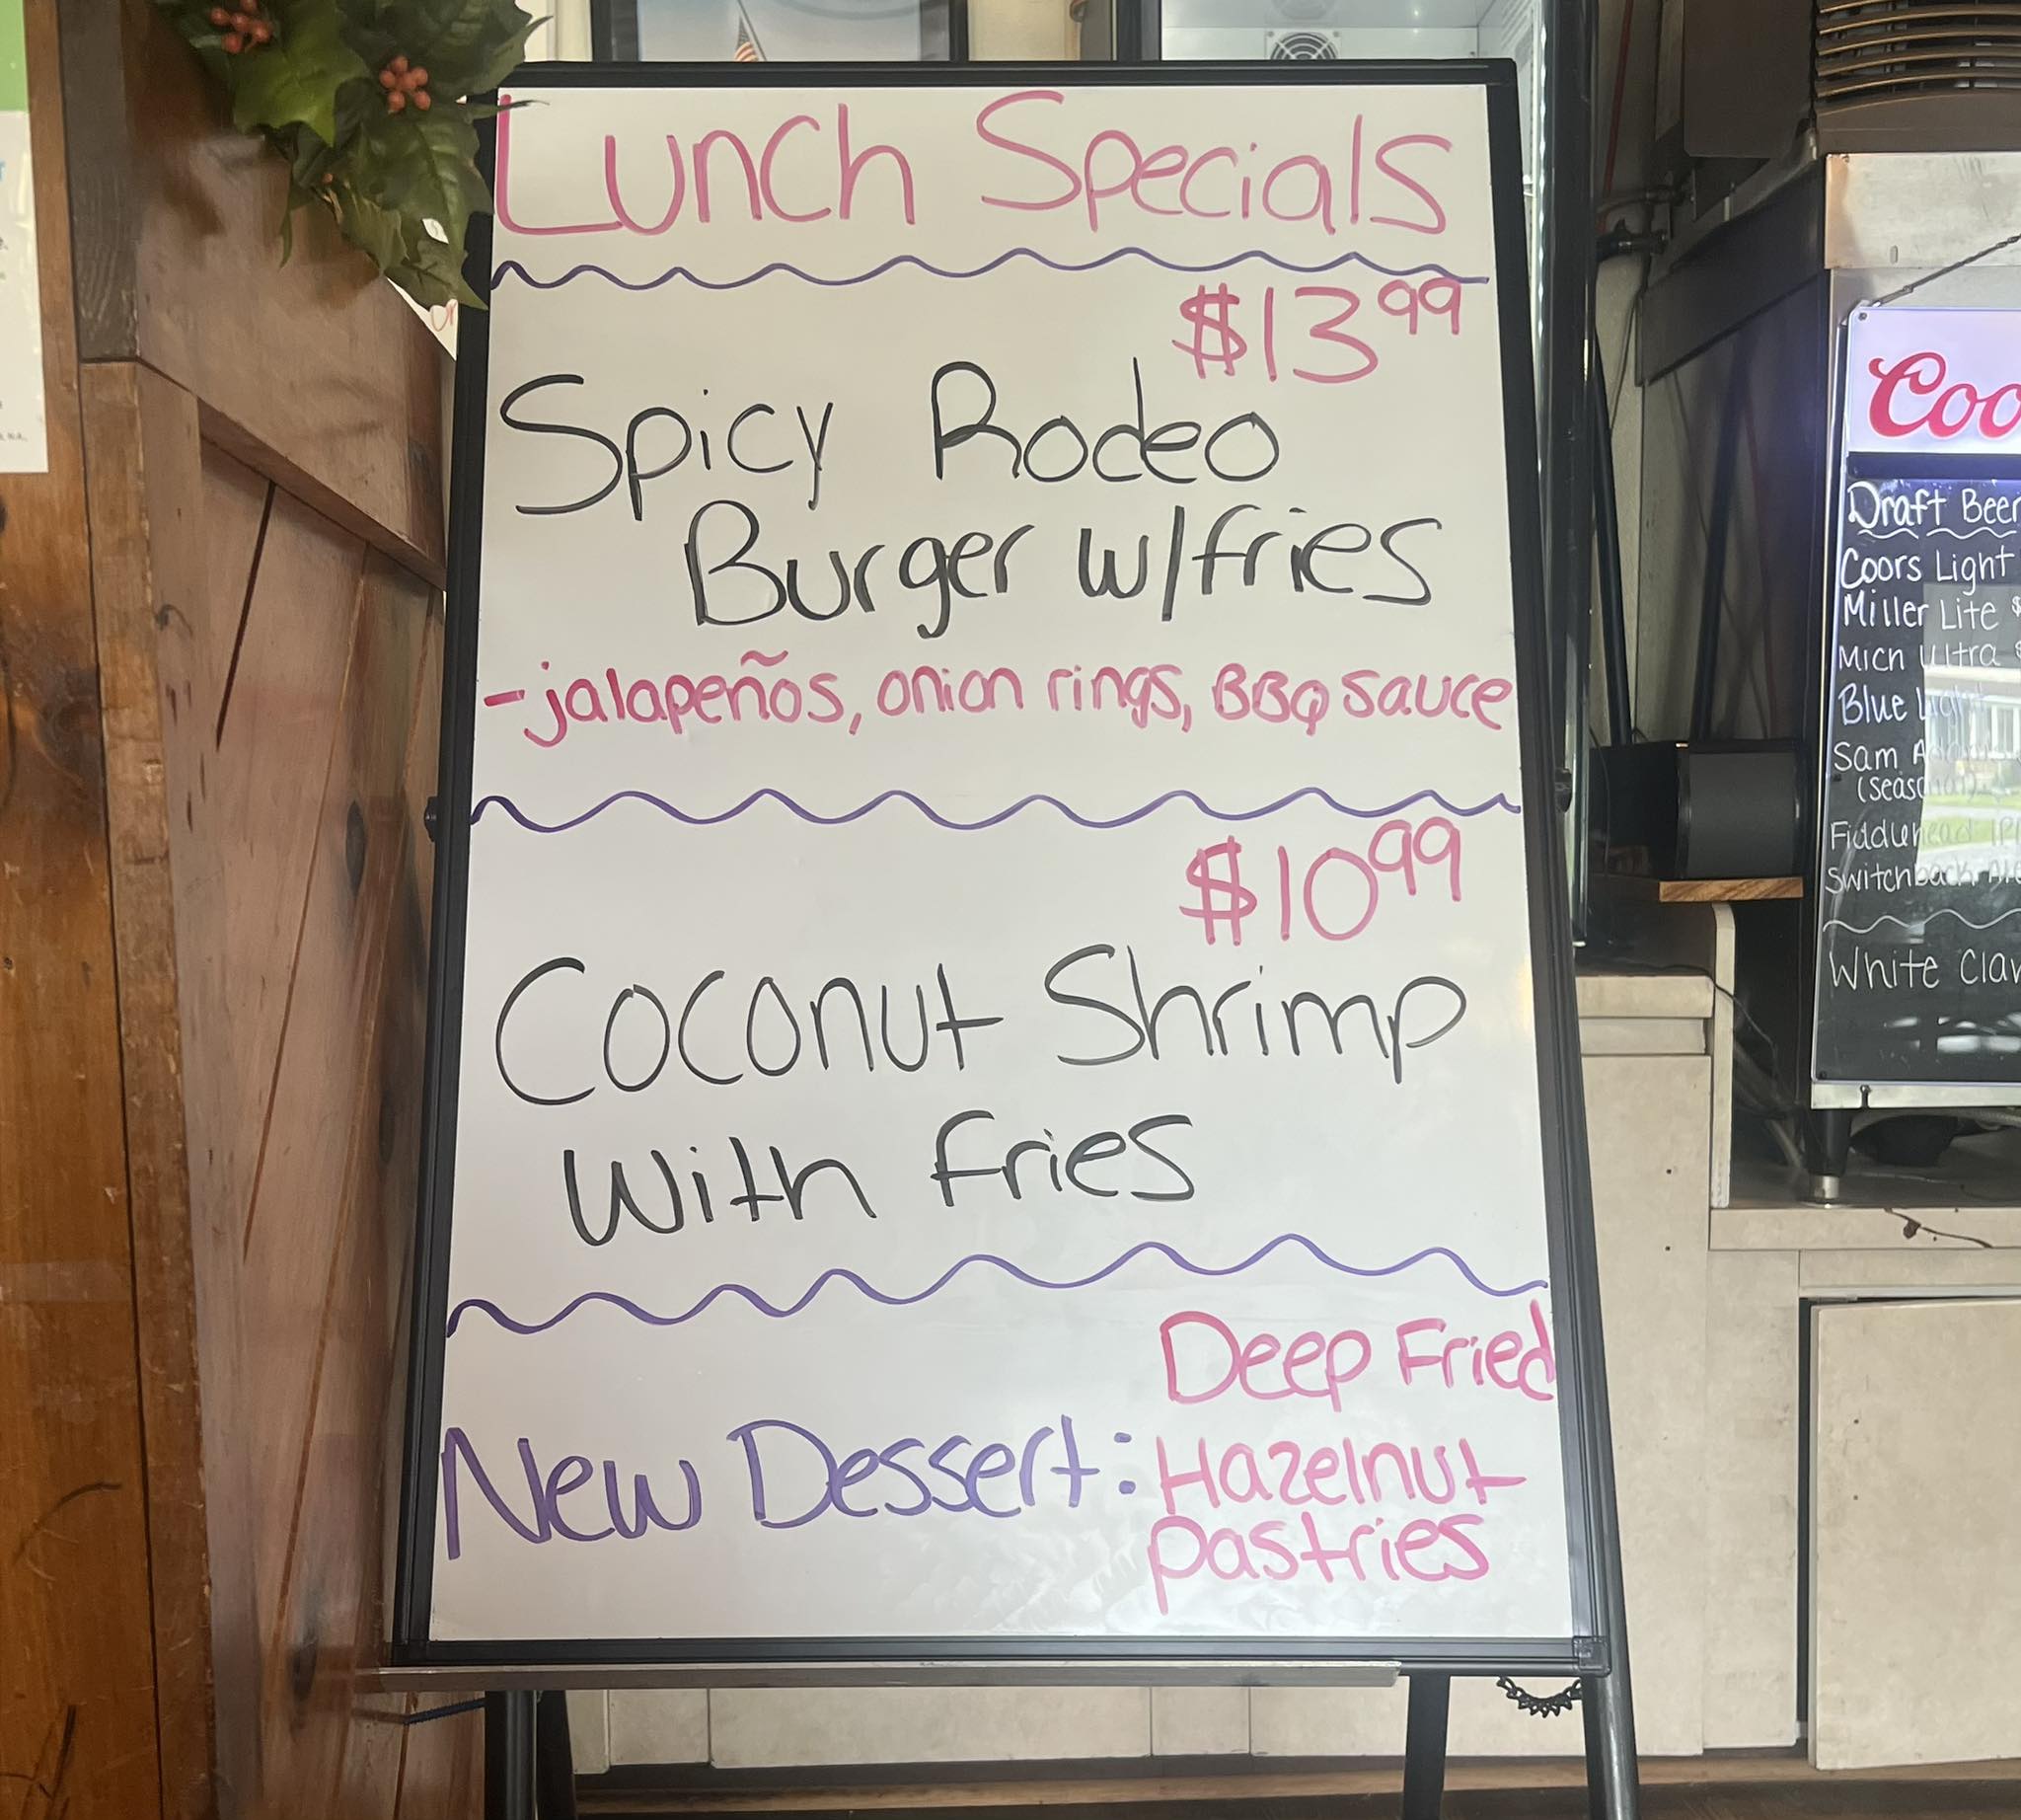 Lunch Specials
$13.99
Spicy Rodeo
Burger w/fries
-jalapeños, onion rings, BBQ Sauce
$10.99
Coconut Shrimp
With fries
Deep Fried
New Dessert: Hazelnut
pastries
Coo
Draft Beer
Coors Light
Miller Lite $
Mich Ultra $
Blue Light
Sam
(Seasonal)
Fiddlehead IP
Switchback Ale
White Claw